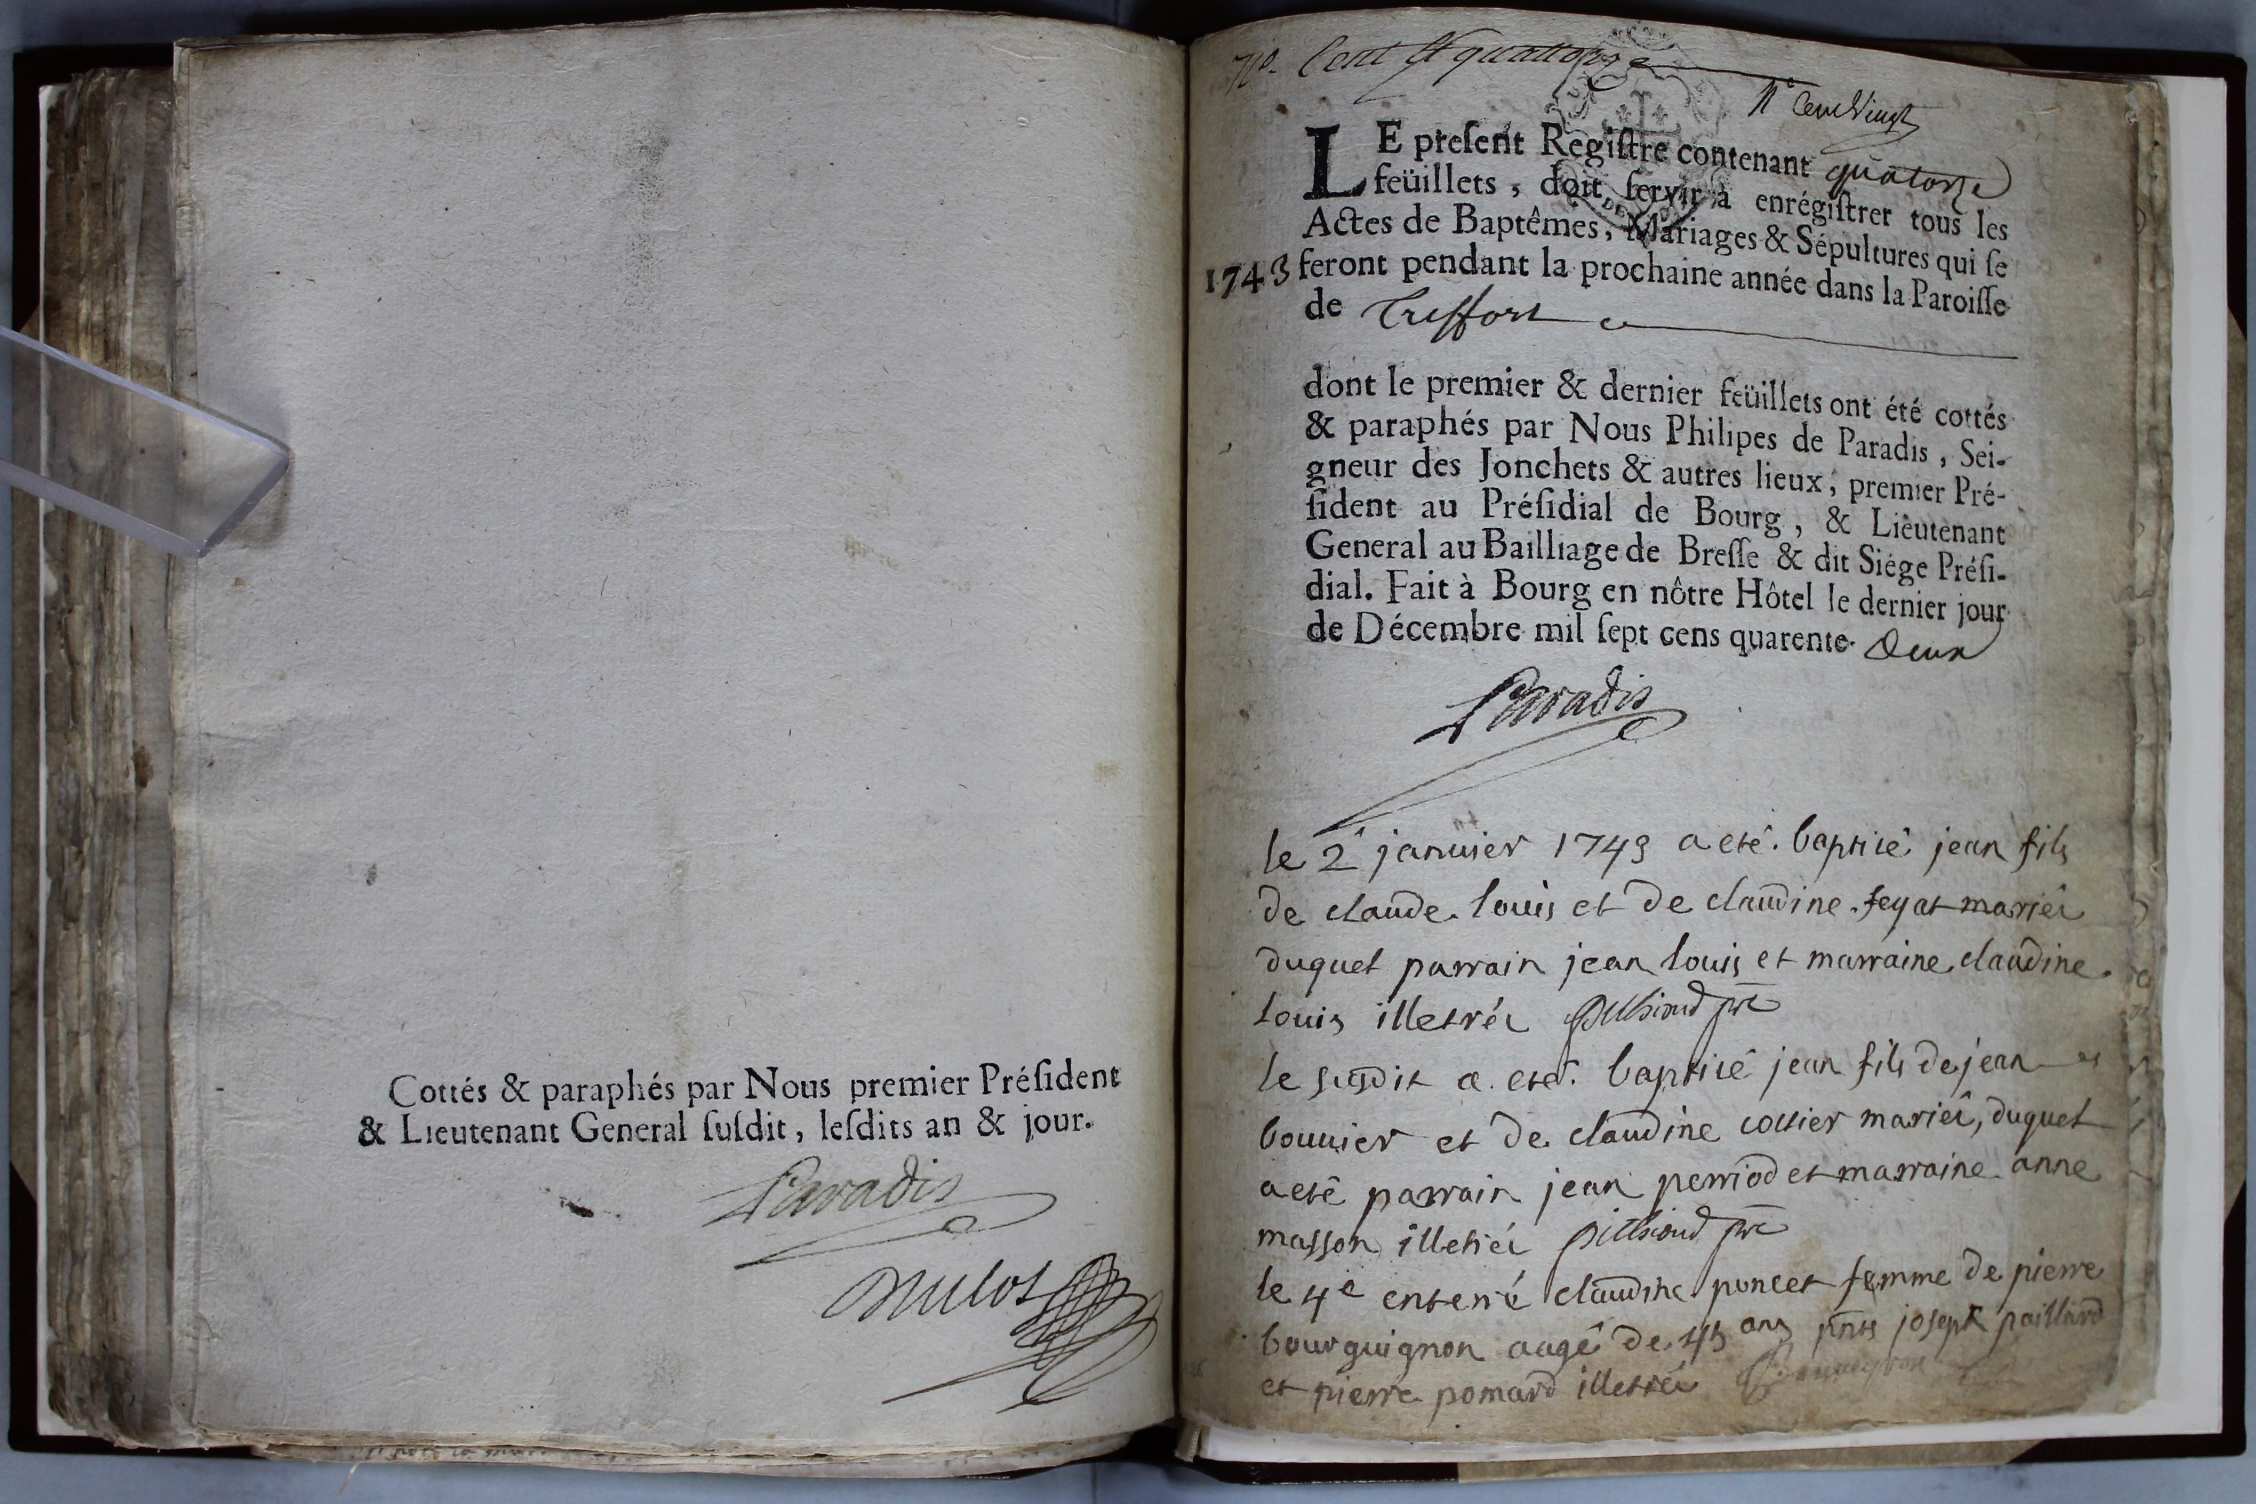 Cottés & paraphés par Nous premier Préſident
& Lieutenant General ſuſdit, leſdits an & jour.
Paradis
N.o Cent quatorze
N.o Cent Vingt
LE preſent Regiſtre contenant quatorze
feüillets, doit ſervir à enrégiſtrer tous les
Actes de Baptêmes, Mariages & Sépultures qui ſe
1743 feront pendant la prochaine année dans la Paroiſſe
de Treffort
dont le premier & dernier feüillets ont été cottés
& paraphés par Nous Philipes de Paradis, Sei-
gneur des Jonchets & autres lieux, premier Pré-
ſident au Préſidial de Bourg, & Lieutenant
General au Bailliage de Breſſe & dit Siége Préſi-
dial. Fait à Bourg en nôtre Hôtel le dernier jour
de Décembre mil ſept cens quarente Deux
Paradis
le 2e janvier 1743 a eté baptisé jean fils
de claude louis et de claudine feyat mariéz
duquel parrain jean louis et marraine claudine
louis illetréz pillioud ptre
le susdit a eté baptisé jean fils de jean
bouvier et de claudine cottier mariéz, duquel
a eté parrain jean perriod et marraine anne
masson illetréz pillioud ptre
le 4e enterré claudine poncet femme de pierre
bourguignon aagé de 45 ans pnts joseph paillard
et pierre pomard illetréz